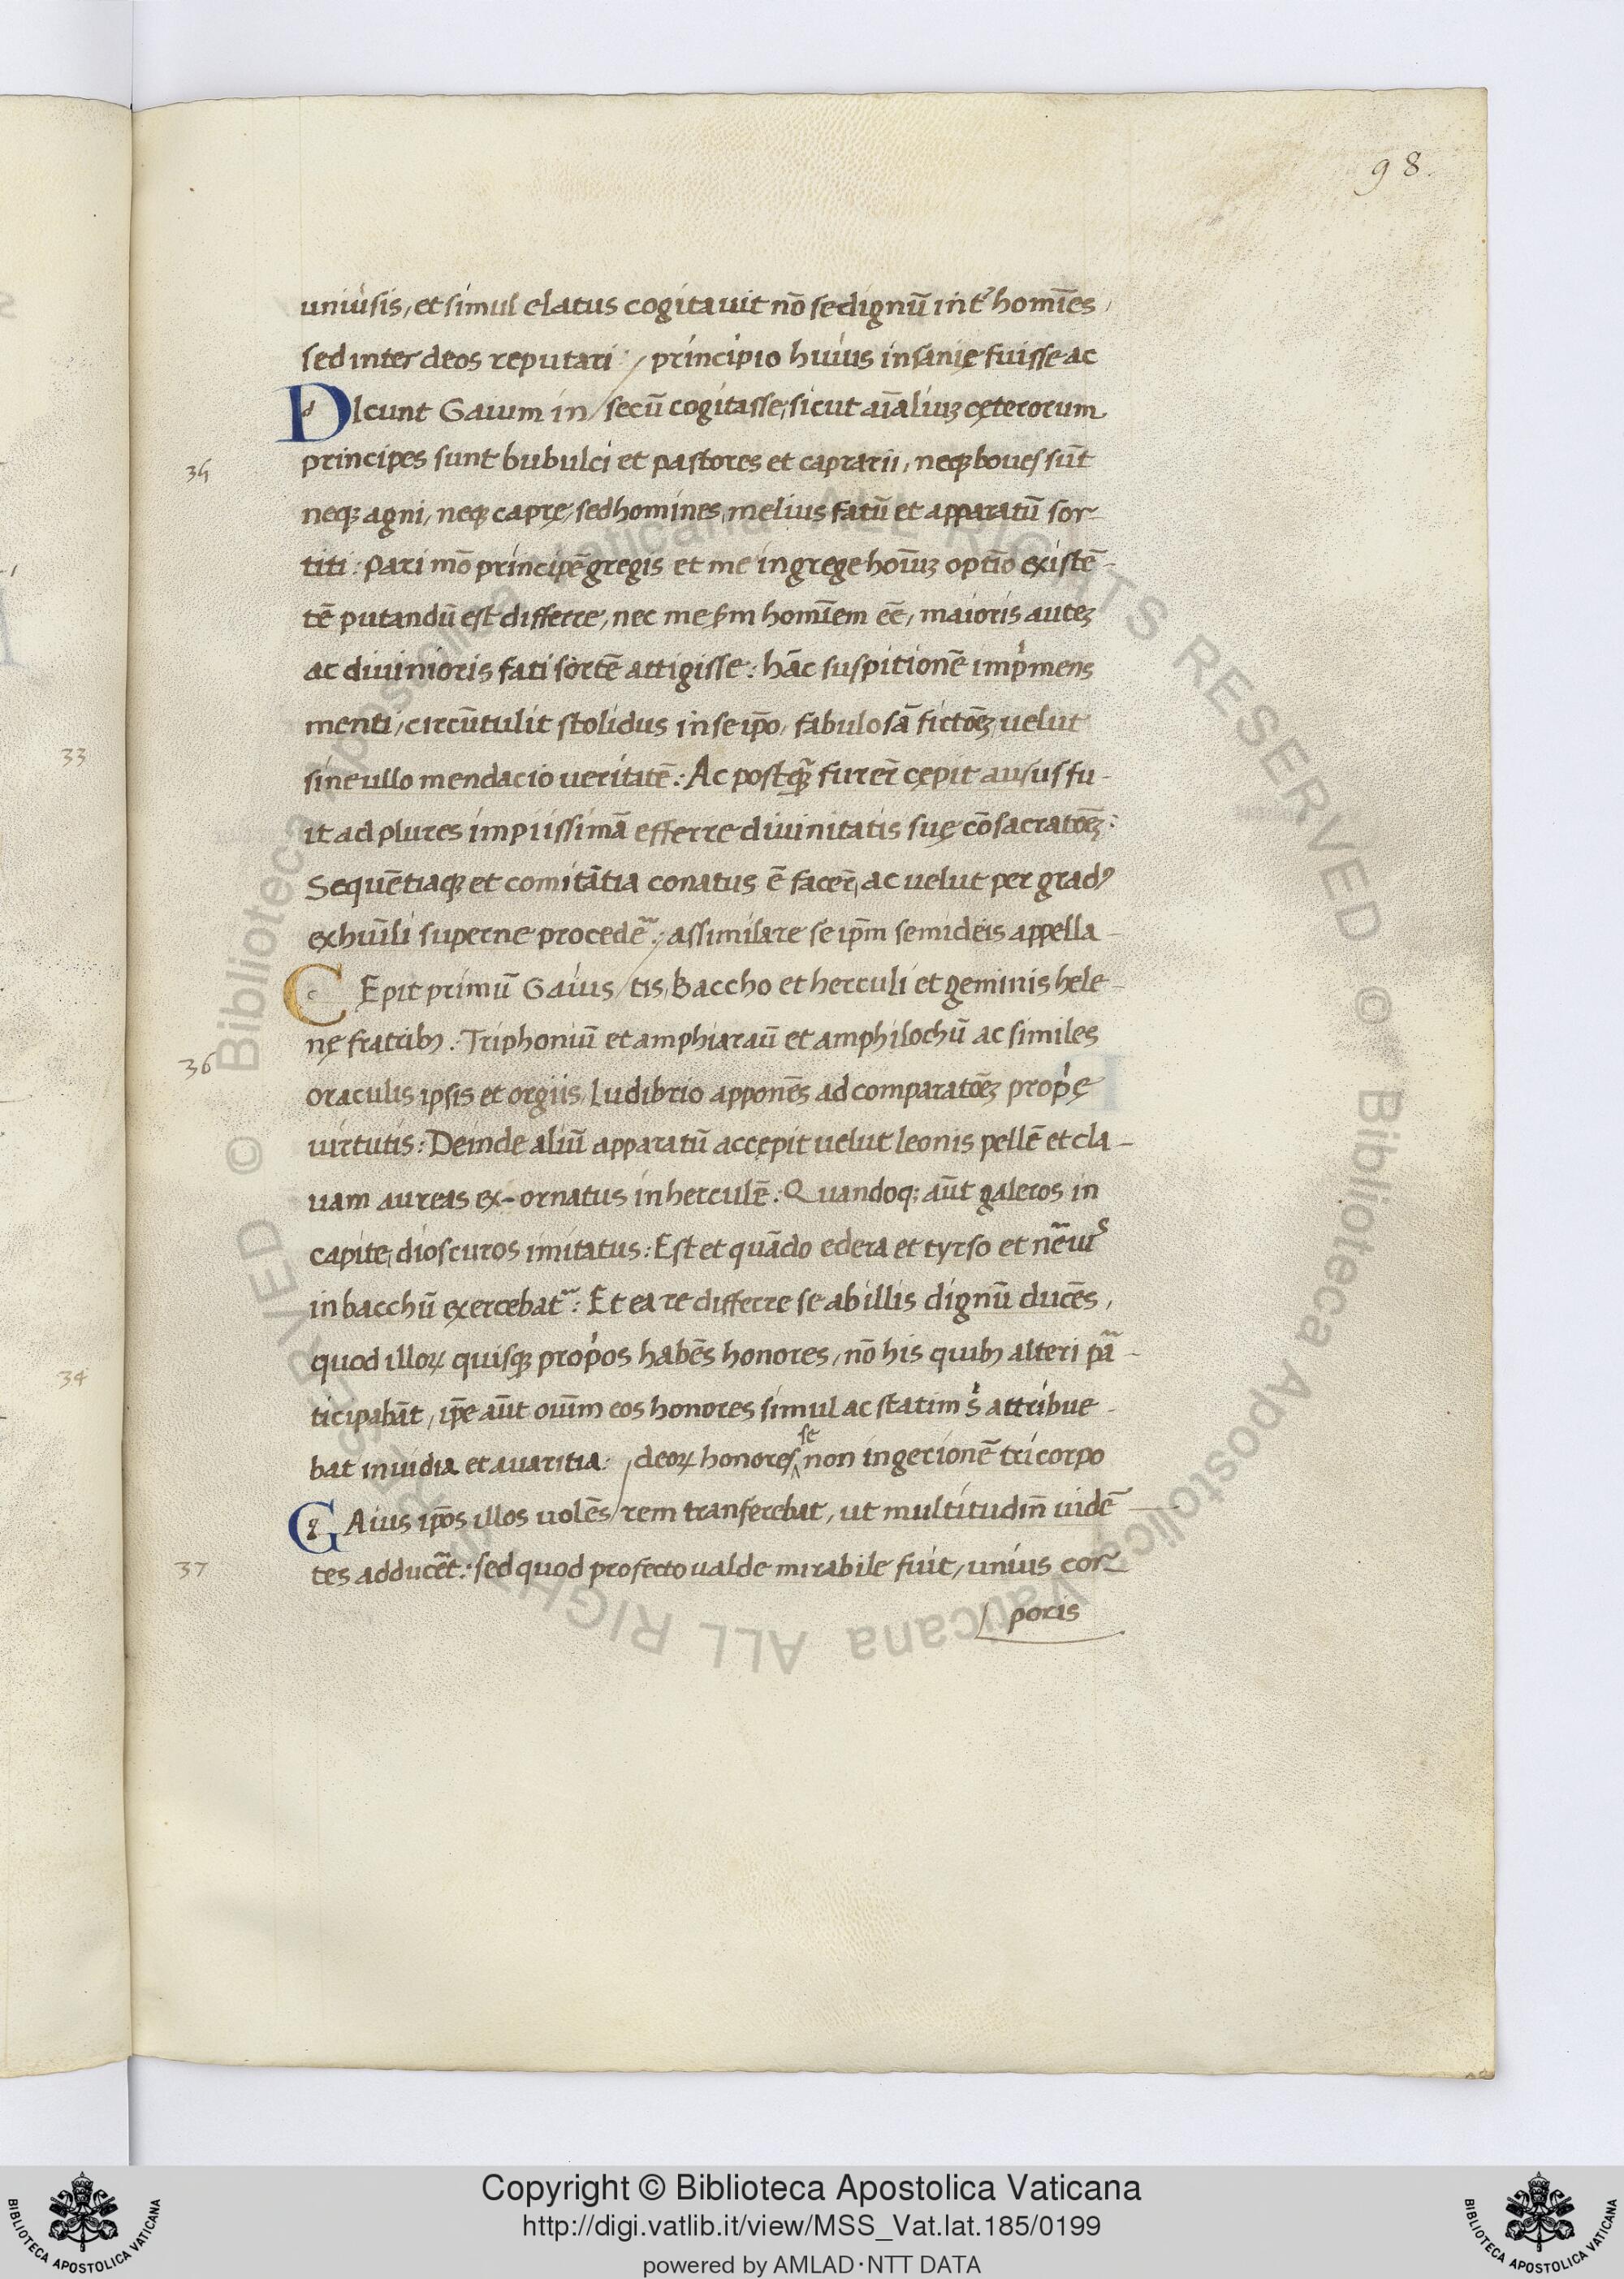 98.
uniúsis, et simul elatus cogitavit nō se dignū int᷑ homīes,
sed inter deos reputari: / principio huius insanię fuisse ac
DIcunt Gaium in / secū cogitasse, sicut aīaliuꝫ cęterorum
35
principes sunt bubulci et pastores et caprarii, neqꝫ boues sūt
neqꝫ agni, neqꝫ caprę, sed homines, melius fatū et apparatū sor-
titi: pari mō principē gregis et me in grege hoīuꝫ optīo existē-
tē putandū est differre, nec me ꝑm homīem eē, maioris auteꝫ
ac diuinioris fati sortē attigisse: hāc suspitionē imp̓mens
menti, circūtulit stolidus in se ip̄o, fabulosā fictōeꝫ, uelut
sine ullo mendacio ueritatē: Ac postqꝫ̄ furer̄ cępit ausus fu-
it ad plures impiissimā efferre diuinitatis suę cōsacratōeꝫ:
Sequētiaqꝫ et comitātia conatus ē facer̄, ac uelut per gradꝰ
ex huīli superne procedēᷓ: / assimilare se ip̄m semideis appella-
CEpit primū Gaius / tis, Baccho et herculi et geminis hele-
nę fratribꝫ. Triphoniū et amphiaraū et amphilochū ac similes
36
oraculis ipsis et orgiis, Ludibrio apponēs ad comparatōeꝫ prop̓ę
uirtutis: Deinde aliū apparatū accępit uelut leonis pellē et cla-
uam aureas ex-ornatus in herculē: Quandoqꝫ aūt galeros in
capite, dioscuros imitatus: Est et quādo edera et tyrso et
in bacchū exercebatᷓ: Et ea re differre se ab illis dignū ducēs,
quod illoꝝ quisqꝫ prop̓os habēs honores, nō his quibꝫ alteri pᷓa-
ticipabāt, ip̄e aūt ouīm eos honores simul ac statim s̓ attribue-
bat inuidia et auaritia: / deoꝝ honores se non in gerionē tricorpo
GAius ip̄os illos uolēs / rem transferebat, ut multitudin̄ uidē-
tes adducēt: sed quod profecto ualde mirabile fuit, unius cor-
37
poris
33
34
© Biblioteca Apostolica Vaticana ALL RIGHTS RESERVED © Biblioteca Apostolica Vaticana ALL RIGHTS RESERVED
Copyright © Biblioteca Apostolica Vaticana
http://digi.vatlib.it/view/MSS_Vat.lat.185/0199
powered by AMLAD·NTT DATA
BIBLIOTECA APOSTOLICA VATICANA
BIBLIOTECA APOSTOLICA VATICANA